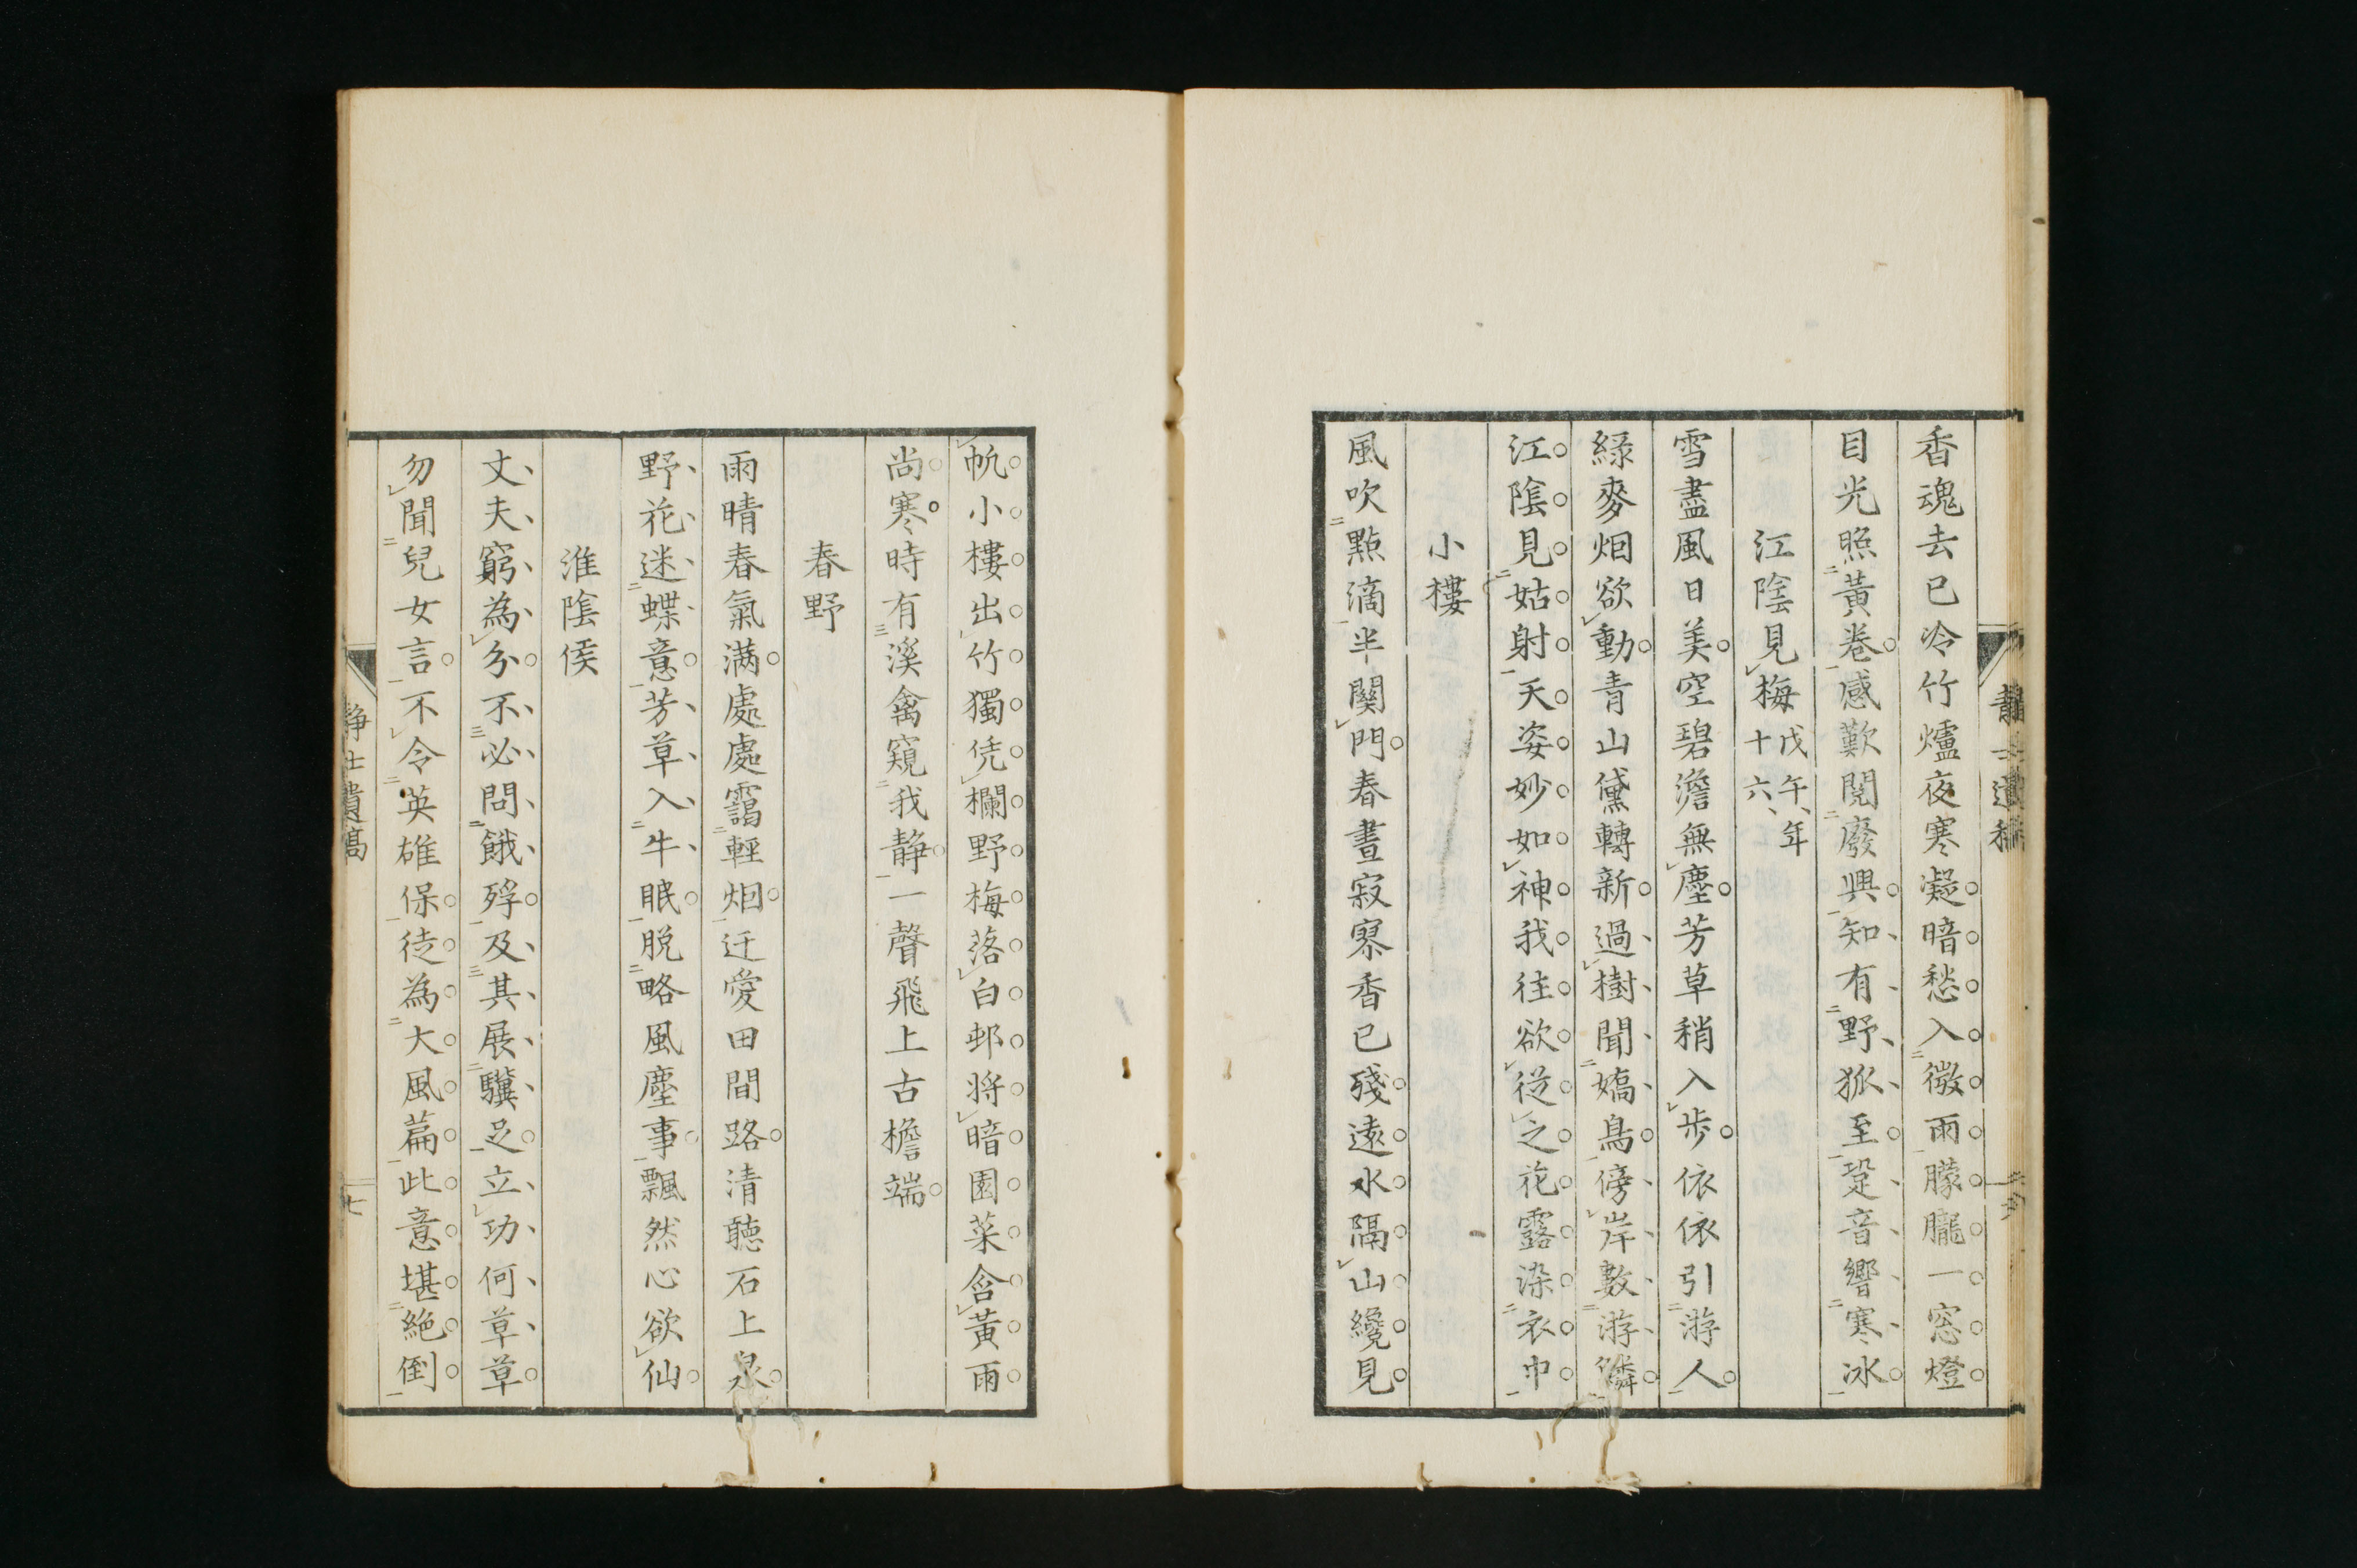 香魂去已冷竹爐夜寒凝暗愁入微雨朦朧一窓燈
目光照黃卷感歎閱廢興知有野狐至跫音響寒冰
江陰見梅戊午、年十六、
雪盡風日美空碧澹無塵芳草稍入步依依引游人
綠麥烟欲動青山黛轉新過樹聞嬌鳥傍岸數游鱗
江陰見姑射天姿妙如神我往欲從之花露染衣巾
小樓
風吹點滴半關門春晝寂寥香已殘遠水隔山纔見
帆小樓出竹獨凭欄野梅落白邨将暗園菜含黃雨
尚寒時有溪禽窺我靜一聲飛上古檐端
春野
雨晴春氣満處處靄輕烟迂愛田間路清聽石上泉
野花迷蝶意芳草入牛眠脱略風塵事飄然心欲仙
淮陰侯
丈夫窮為分不必問餓殍及其展驥足立功何草草
勿聞兒女言不令英雄保徒為大風篇此意堪絶倒
靜士遺稿
七